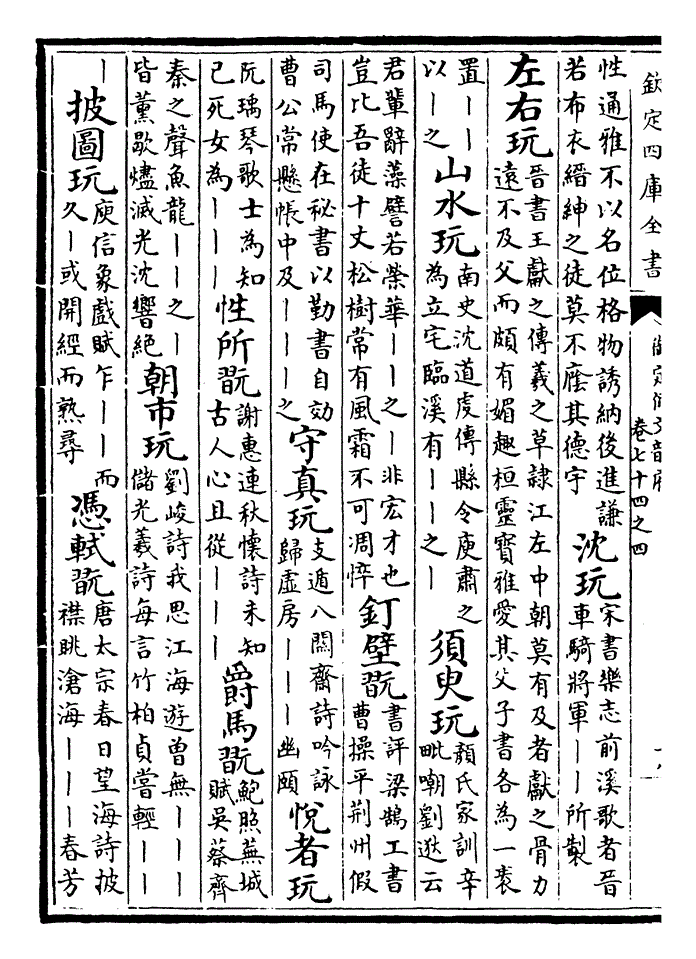 欽定四庫全書
卷七十四之四
性通雅不以名位格物誘納後進謙若布衣縉紳之徒莫不廕其德宇 沈玩 宋書樂志前溪歌者晉車騎將軍丨丨所製
左右玩 晉書王獻之傳羲之草隸江左中朝莫有及者獻之骨力遠不及父而頗有媚趣桓靈寳雅愛其父子書各為一袠
置丨丨以丨之 山水玩 南史沈道虔傳縣令庾肅之為立宅臨溪有丨丨之丨 須臾玩 顔氏家訓辛毗嘲劉逖云
君輩辭藻譬若榮華丨丨之丨非宏才也豈比吾徒十丈松樹常有風霜不可凋悴 釘壁翫 書評梁鵠工書曹操平荆州假
司馬使在秘書以勤書自効曹公常懸帳中及丨丨丨之 守真玩 支遁八關齋詩吟詠歸虛房丨丨丨幽頤 悅者玩
阮瑀琴歌士為知己死女為丨丨丨 性所翫 謝惠連秋懷詩未知古人心且從丨丨丨 爵馬翫 鮑照蕪城賦吳蔡齊
秦之聲魚龍丨丨之丨皆薰歇燼滅光沈響絕 朝市玩 劉峻詩我思江海遊曾無丨丨丨儲光羲詩每言竹柏貞嘗輕丨丨
丨 披圖玩 庾信象戲賦乍丨丨而久丨或開經而熟尋 憑軾翫 唐太宗春日望海詩披襟眺滄海丨丨丨春芳